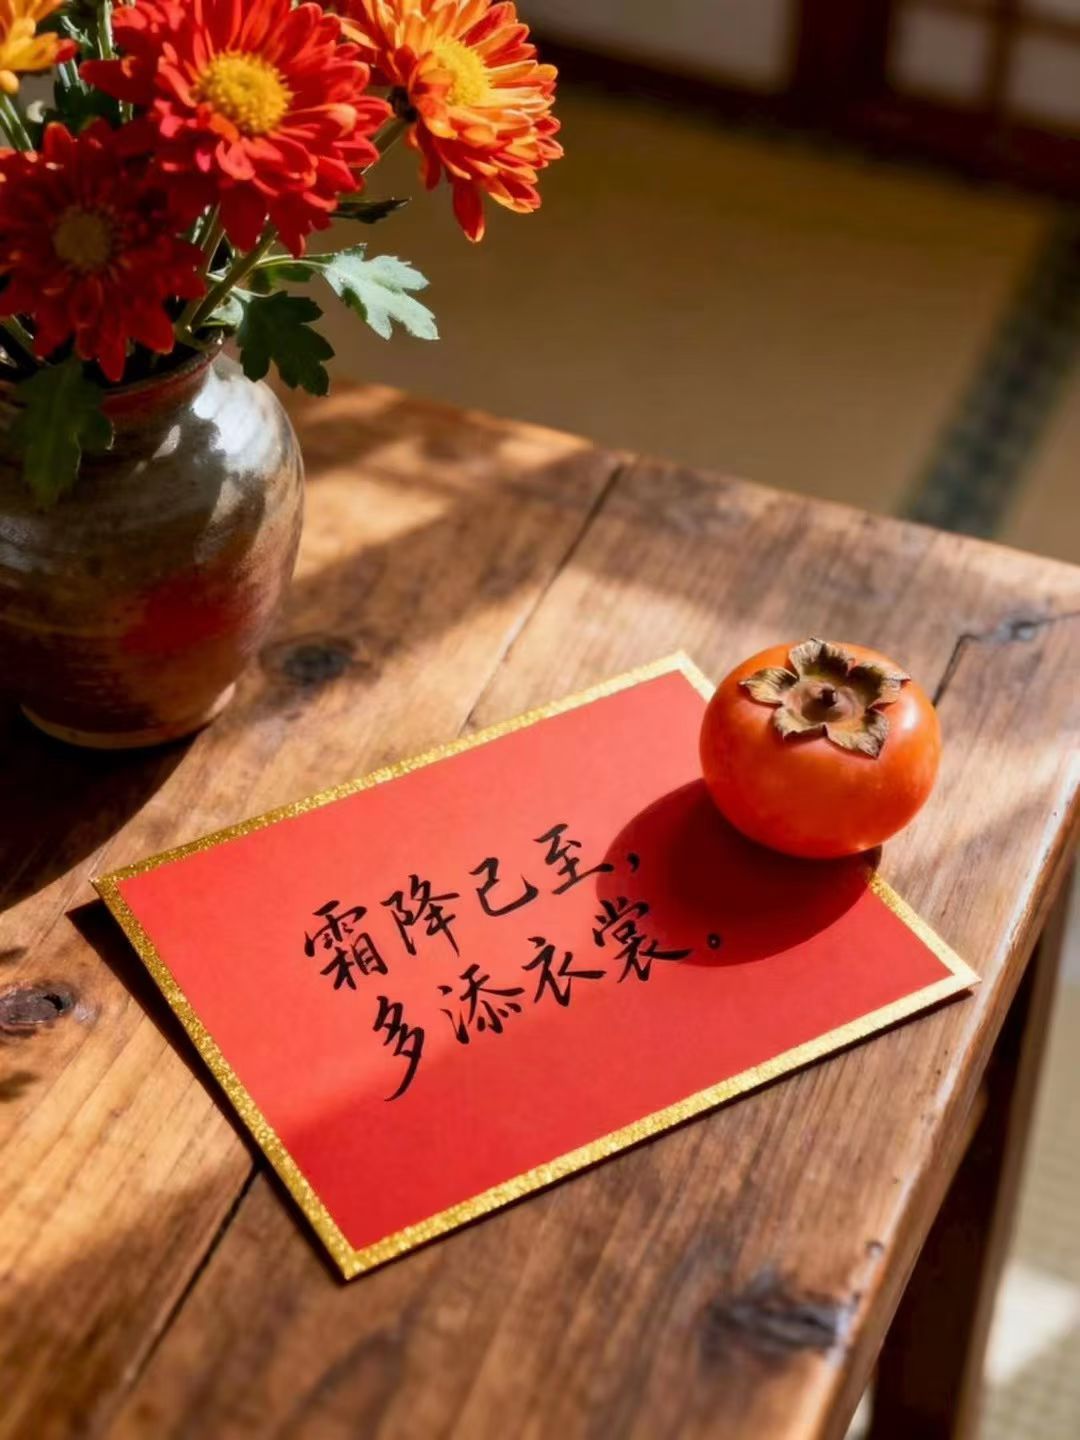 霜降已至，
多添衣裳。